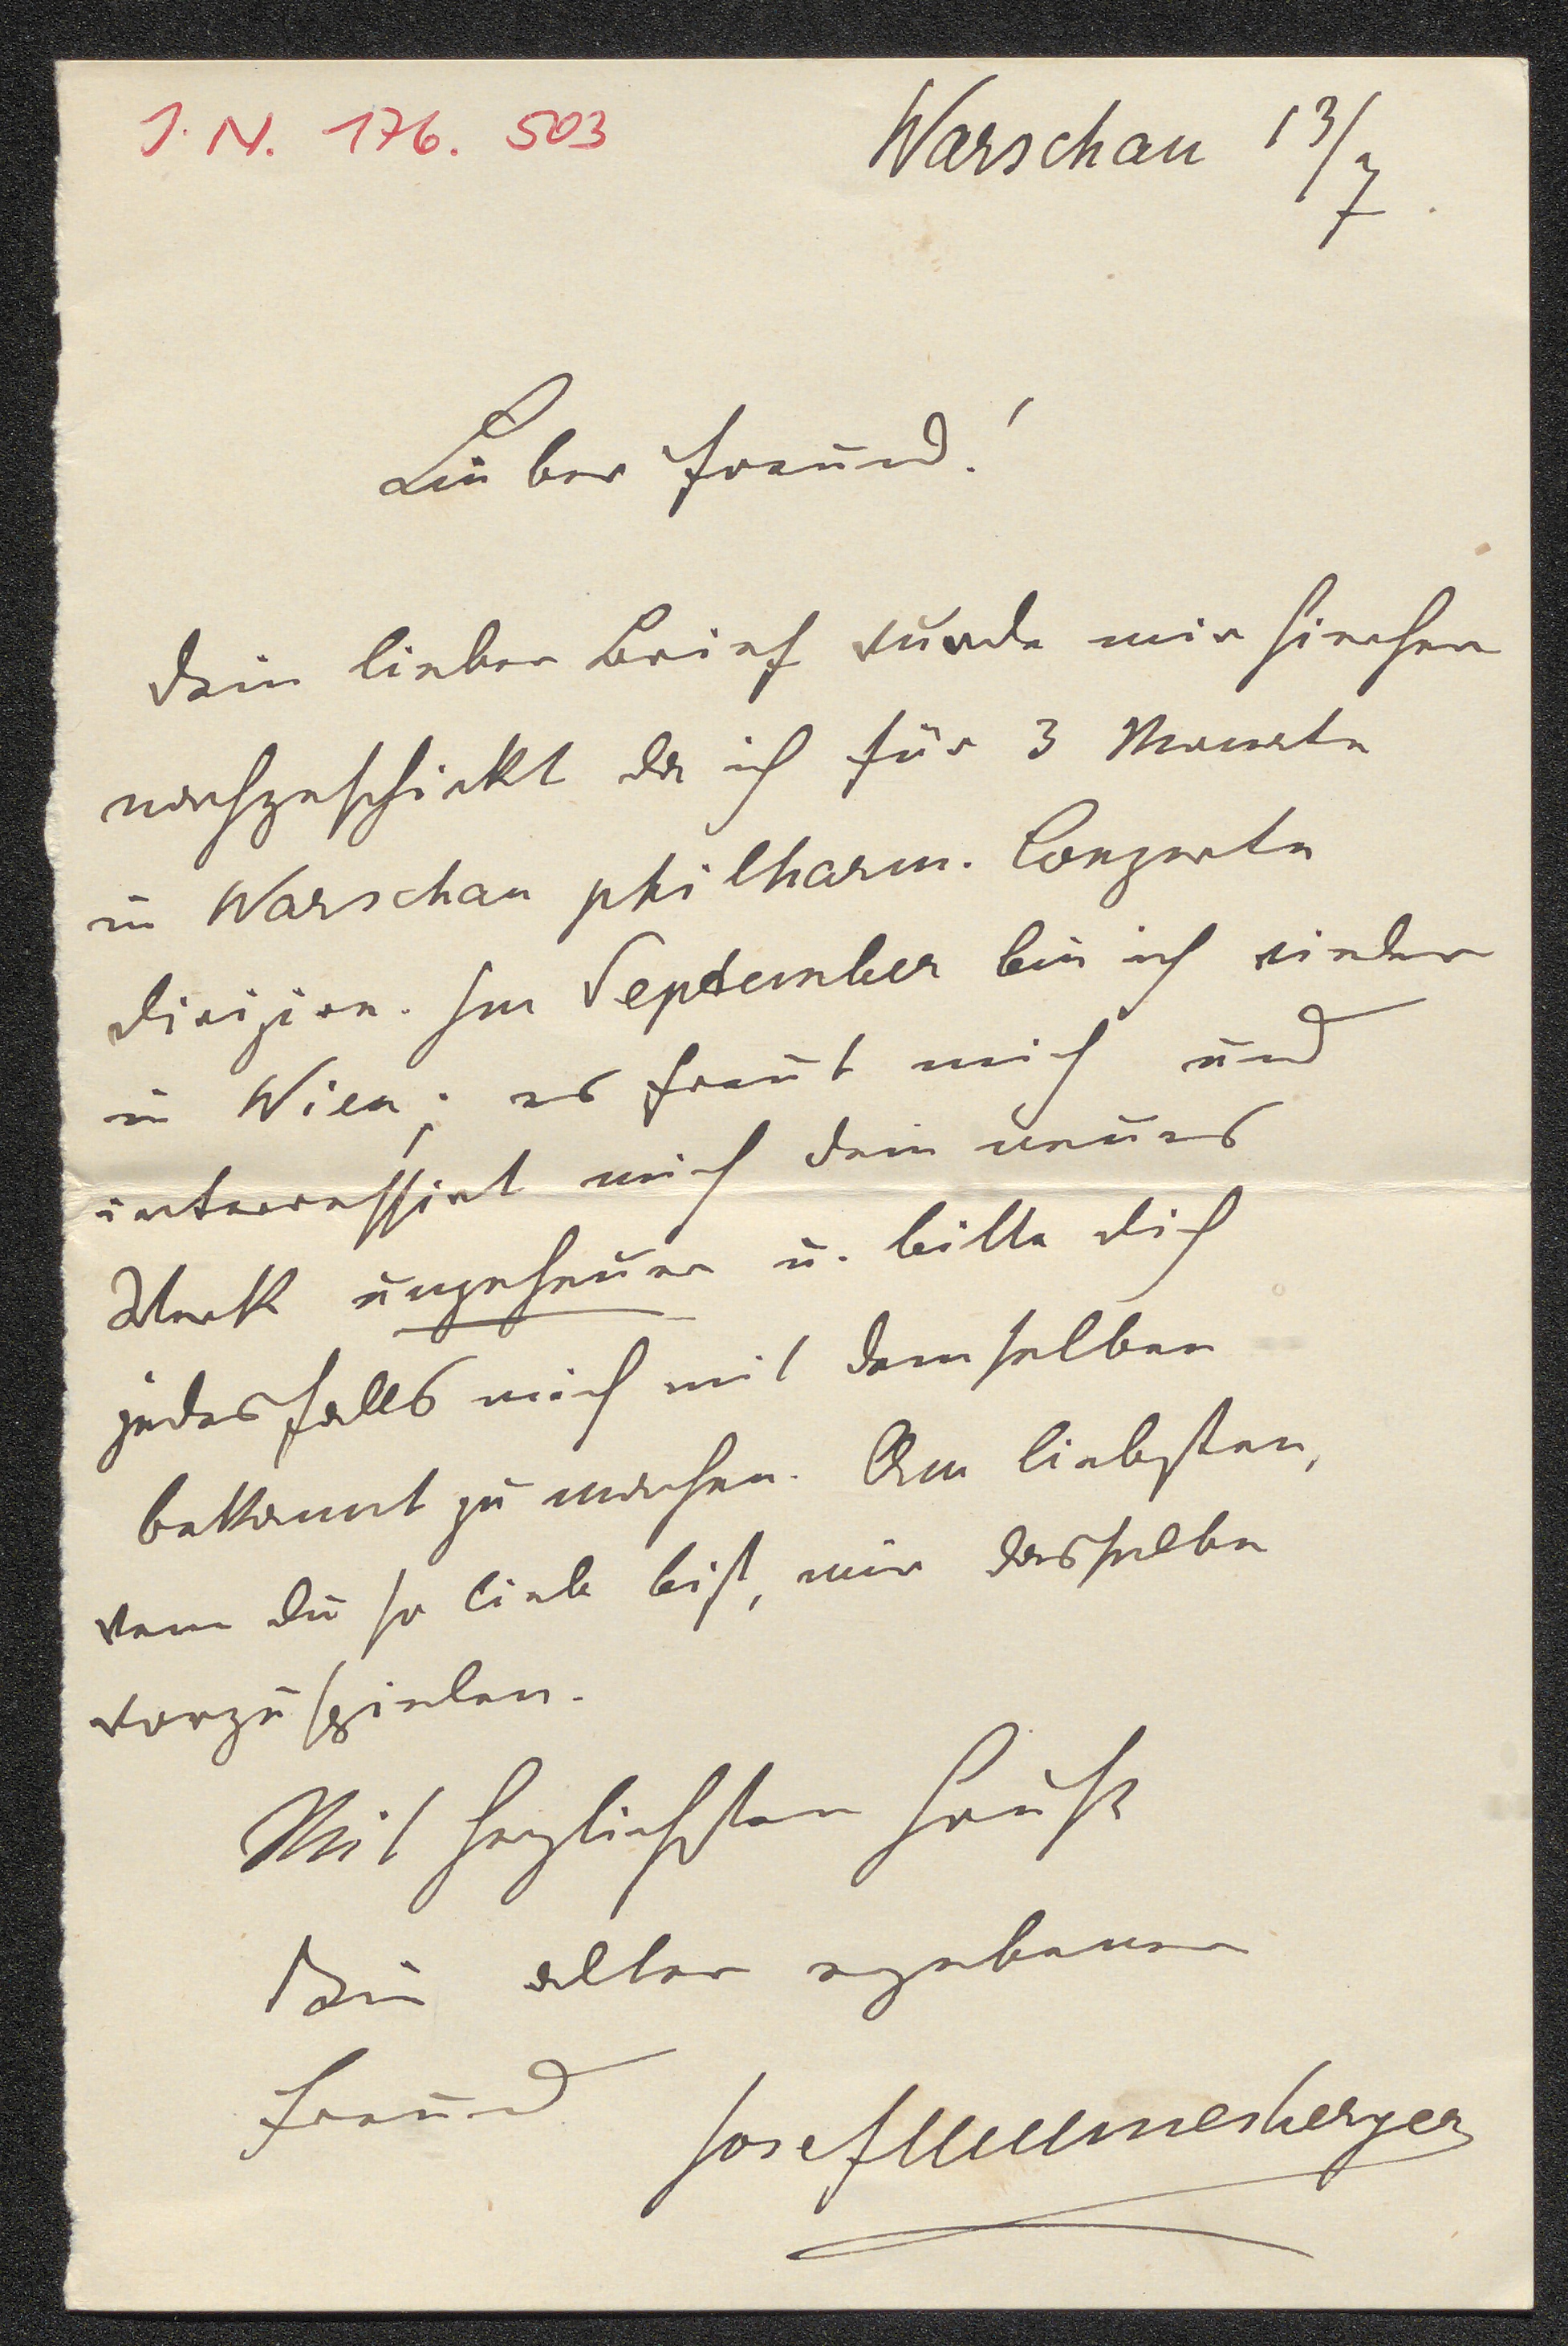 J. N. 176. 503
Warschau 13/7
Lieber Freund!
Dein lieber Brief wurde mir hierher
nachgeschickt da ich für 3 Monate
in Warschau philharm. Conzerte
dirigire. Im September bin ich wieder
in Wien; es freut mich und
interressirt mich dein neues
Werk ungeheuer u. bitte dich
jedesfalls mich mit demselben
bekannt zu machen. Am liebsten,
wenn du so lieb bist, mir dasselbe
vorzuspielen.
Mit herzlichsten Gruße
Dein alter ergebener
Freund
Josef Hellmesberger